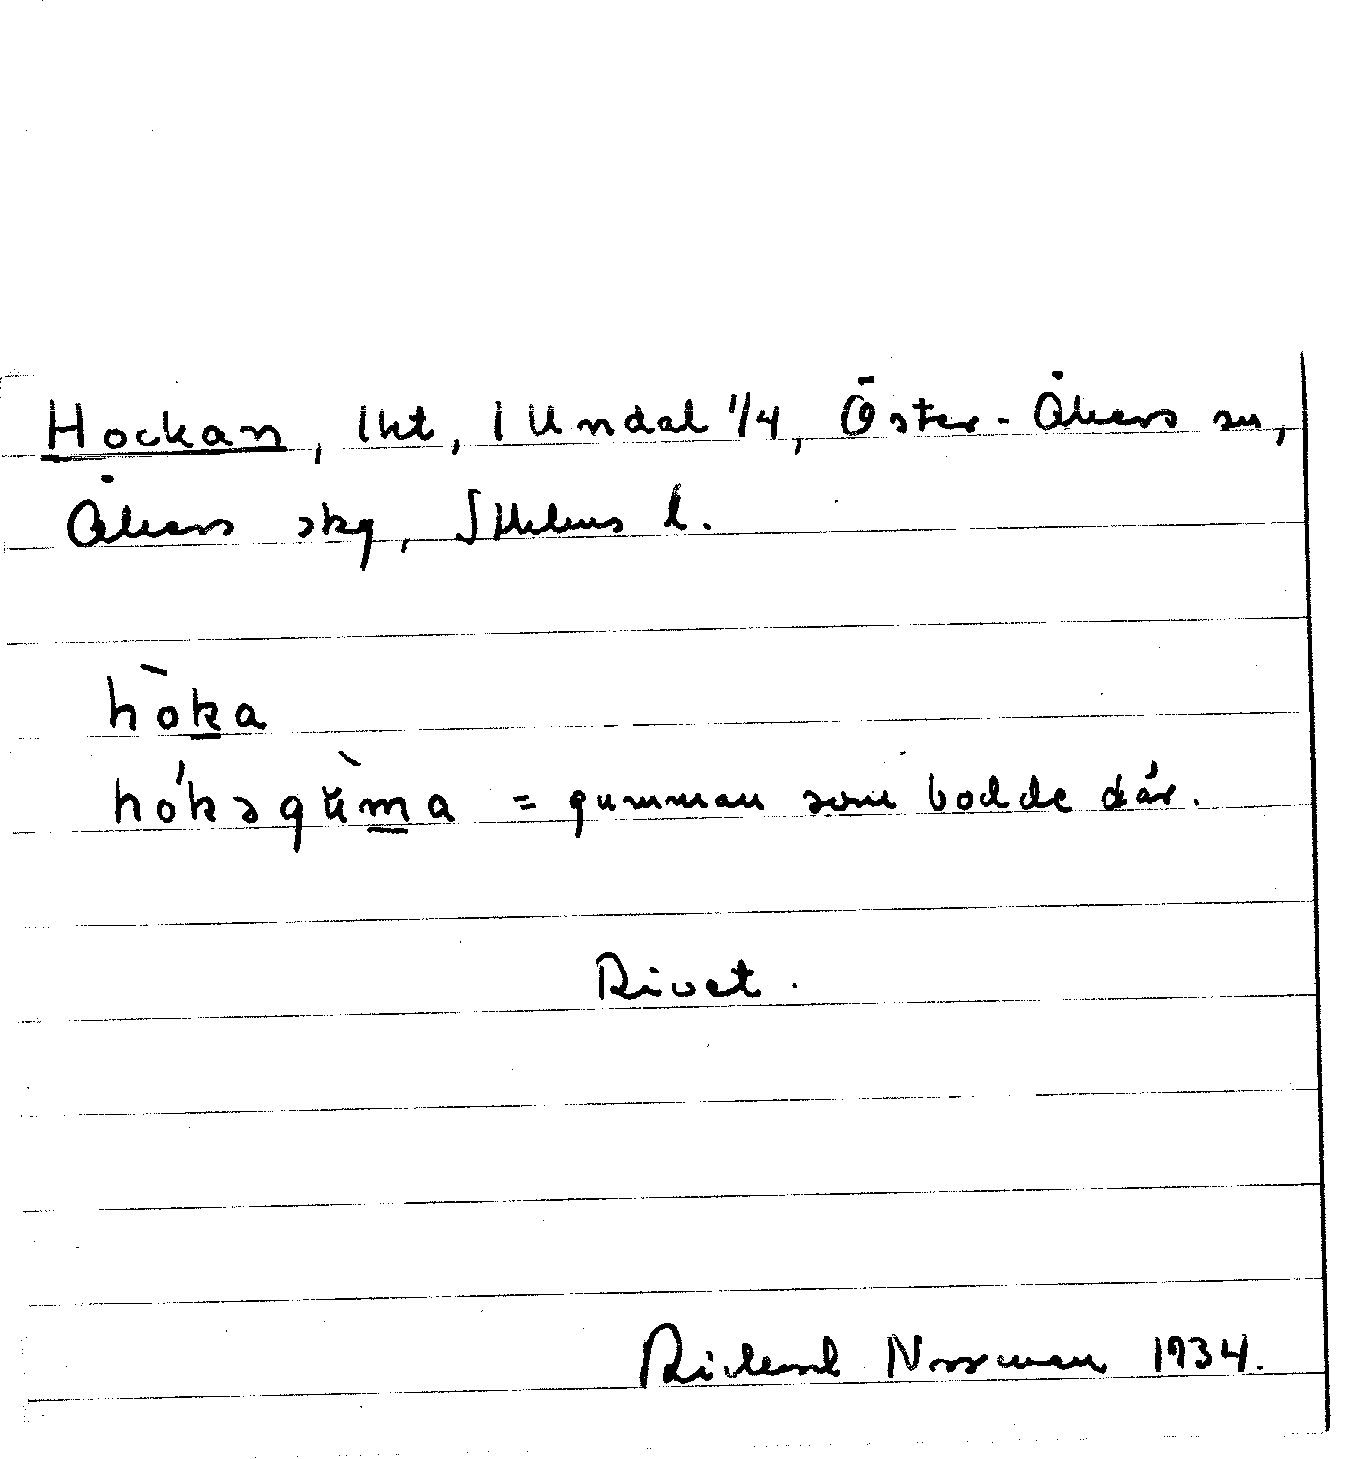 Hockan, lht, 1 Undal 1/4, Öster-Åkers sn,
Åkers skg, Sthlms l.
hòka
hókəgùma = gumman som bodde där.
Rivet.
Rickard Norrman 1934.